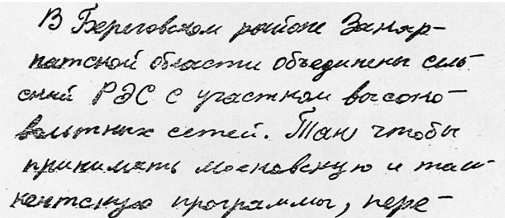 В Береговском районе Закар-
патской области объединены сель-
ский РЭС с участком высоко-
вольтных сетей. Так чтобы
принимать московскую и таш-
кентскую программы, пере-